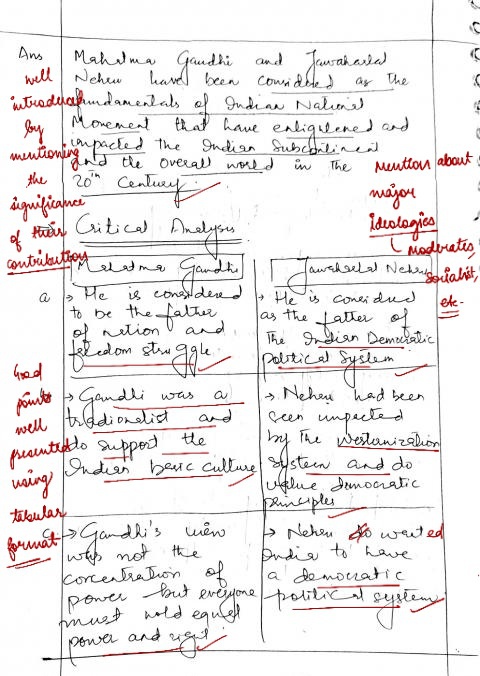 Ans Mahatma Gandhi and Jawaharlal
Nehru have been considered as the
fundamentals of Indian National
Movement that have enlightened and
impacted the Indian Subcontinent
and the overall world in the
20th Century.
well
introduced
by
mentioning
the
significance
of their
contributions
Mention about
major
ideologies
moderates,
socialist,
etc-
Critical Analysis
Mahatma Gandhi
a → He is considered
to be the father
of nation and
freedom struggle.
→ Gandhi was a
tradionalist and
to support the
Indian basic culture
→ Gandhi's view
was not the
concentration of
power but everyone
must hold equal
power and right
Jawaharlal Nehru
→ He is considred
as the father of
the Indian Democratic
political System
→ Nehru had been
seen impacted
by the westanization
system and do
value democratic
principles
→ Nehru wanted
India to have
a democratic
political system
Good
points
well
presented
using
tabular
format